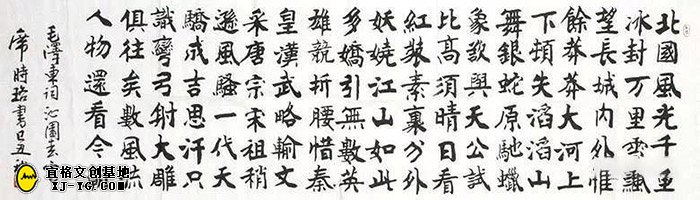 北國風光千里
冰封万里雪飄
望長城内外惟
餘莽莽大河上
下頓失滔滔山
舞銀蛇原馳蠟
象欲與天公試
比高須晴日看
紅裝素裹分外
妖嬈江山如此
多嬌引無數英
雄競折腰惜秦
皇漢武略輸文
采唐宗宋祖稍
遜風騷一代天
驕成吉思汗只
識彎弓射大雕
俱往矣數風流
人物還看今
毛澤東詞 沁園春
席時珞書己丑
宜格文创基地
YJ-YG.COM